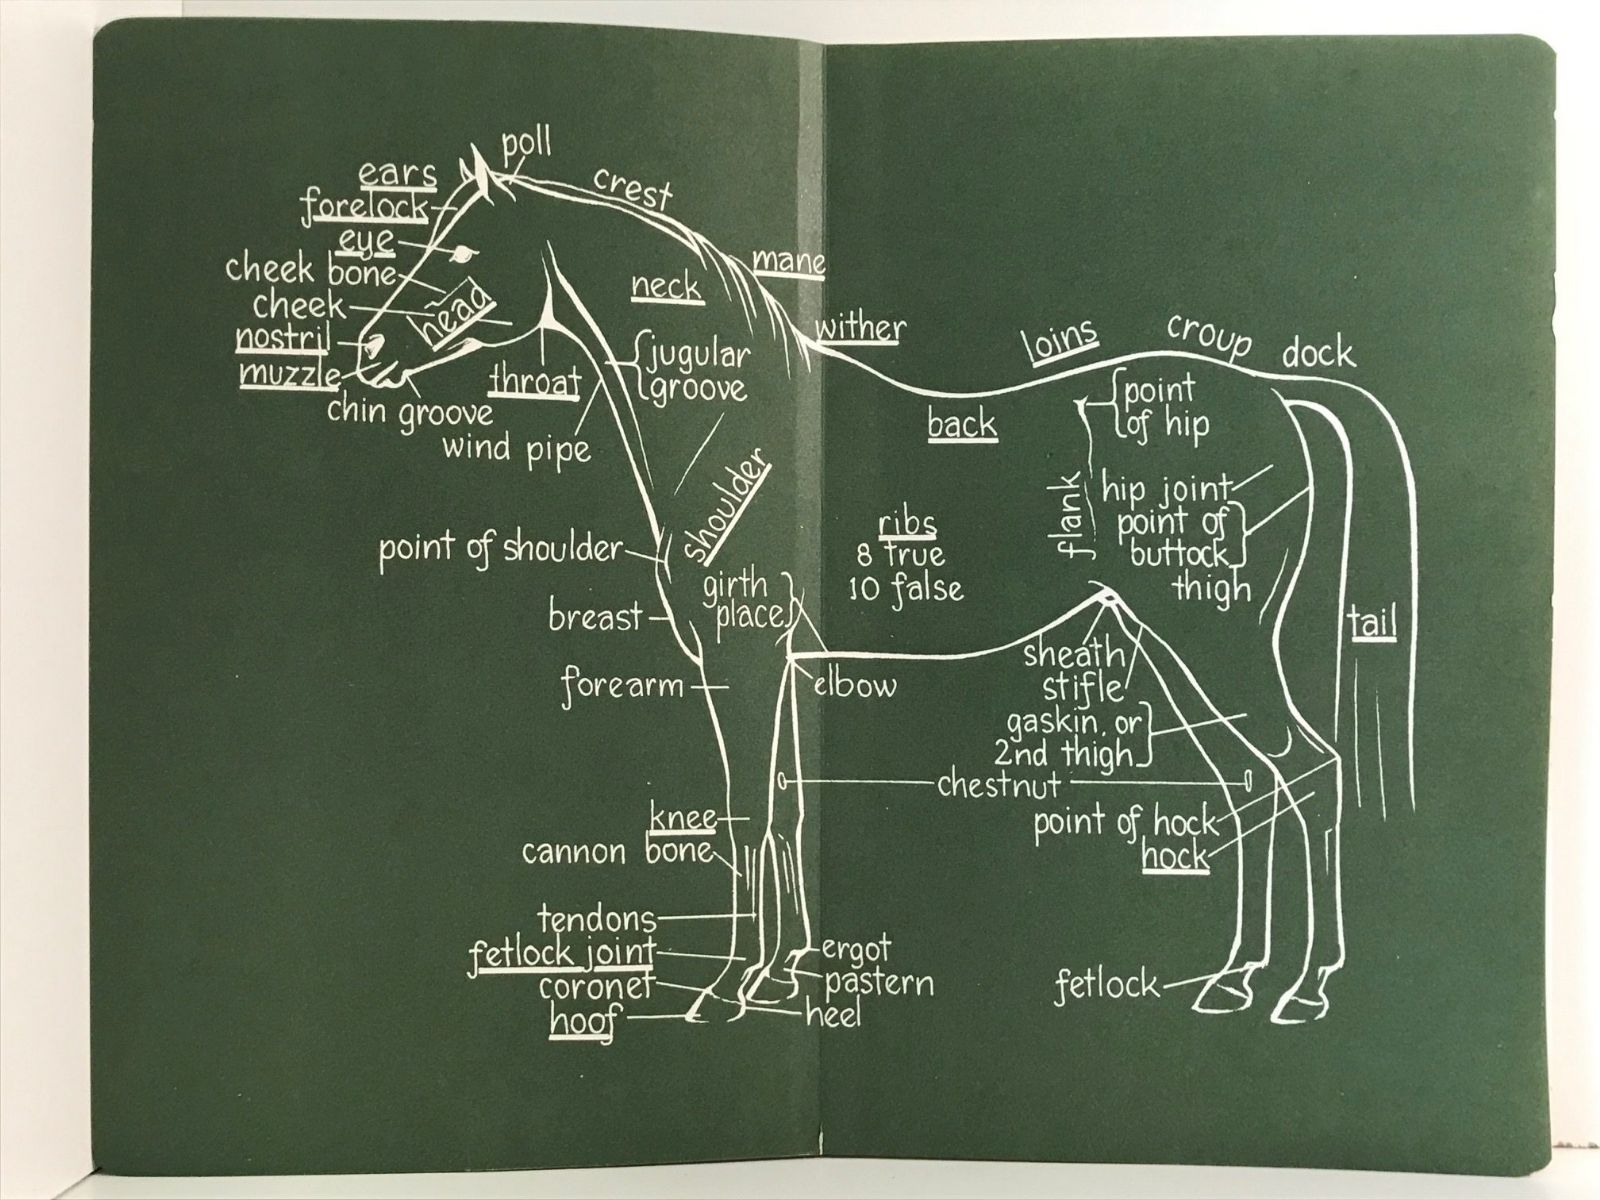 poll
ears
crest
forelock
eye
mane
cheek bone
head
neck
cheek
nostril
muzzle
wither
loins
croup
dock
jugular
groove
throat
chin groove
wind pipe
back
point
of hip
flank
shoulder
hip joint
point of
buttock
thigh
ribs
8 true
10 false
point of shoulder
girth
place
breast
tail
forearm
elbow
sheath
stifle
gaskin, or
2nd thigh
chestnut
knee
cannon bone
point of hock
hock
tendons
fetlock joint
coronet
hoof
ergot
pastern
heel
fetlock